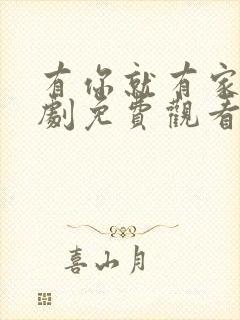 有你就有家
劇免費觀看
喜山月